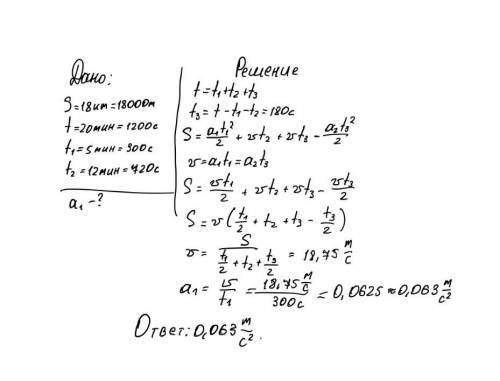 Дано:
S=18км=18000м
t=20мин=1200с
t₁=5мин=300с
t₂=12мин=720с
a₁-?
Решение
t=t₁+t₂+t₃
t₃=t-t₁-t₂=180с
S=a₁t₁²/2+vt₂+vt₃-a₂t₃²/2
v=a₁t₁=a₂t₃
S=vt₁/2+vt₂+vt₃-vt₃/2
S=v(t₁/2+t₂+t₃-t₃/2)
v=S/(t₁/2+t₂+t₃/2)=18,75 м/с
a₁=v/t₁=18,75 м/с/300с=0,0625≈0,063 м/с²
Ответ: 0,063 м/с².